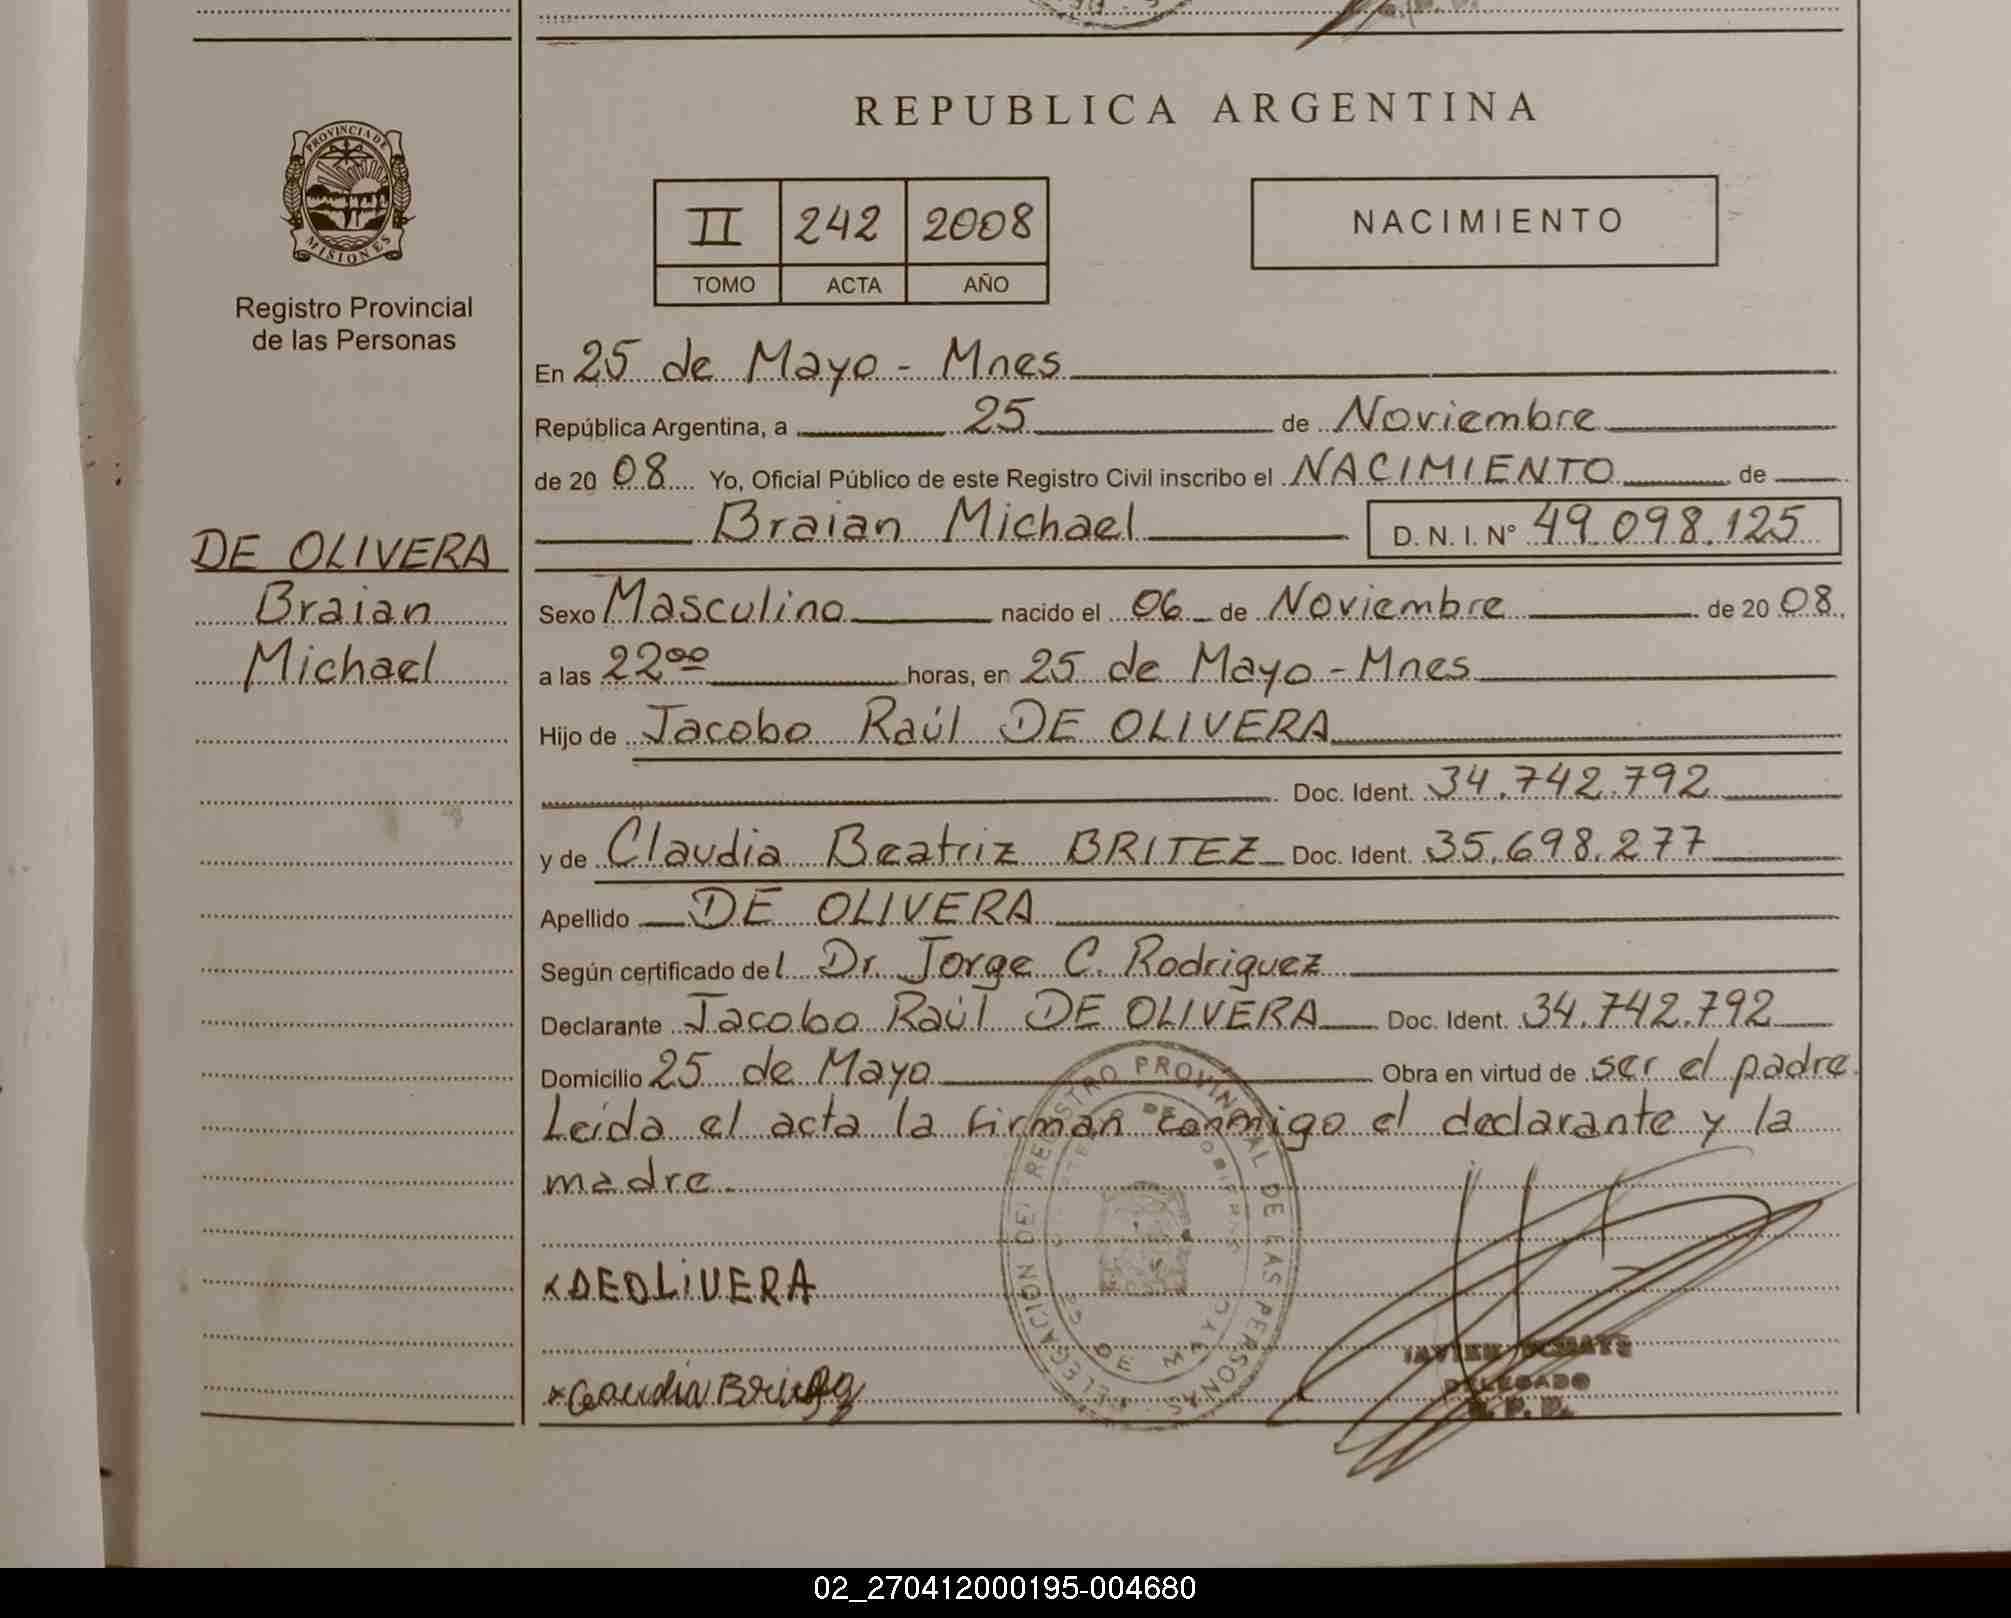 REPUBLICA ARGENTINA
PROVINCIA DE
MISIONES
Registro Provincial
de las Personas
II 242 2008
TOMO ACTA AÑO
NACIMIENTO
En 25 de Mayo - Mnes
República Argentina, a 25 de Noviembre
de 20 08 Yo, Oficial Público de este Registro Civil inscribo el NACIMIENTO de
Braian Michael D. N. I. N° 49.098.125
DE OLIVERA
Braian
Michael
Sexo Masculino nacido el 06 de Noviembre de 20 08
a las 22⁰⁰ horas, en 25 de Mayo - Mnes
Hijo de Jacobo Raúl DE OLIVERA
Doc. Ident. 34.742.792
y de Claudia Beatriz BRITEZ Doc. Ident. 35.698.277
Apellido DE OLIVERA
Según certificado del Dr. Jorge C. Rodriguez
Declarante Jacobo Raúl DE OLIVERA Doc. Ident. 34.742.792
Domicilio 25 de Mayo Obra en virtud de ser el padre.
Leída el acta la firman conmigo el declarante y la
madre.
DELEGACION DEL REGISTRO PROVINCIAL DE LAS PERSONAS
25 DE MAYO
x DEOLiVERA
x Claudia
JAVIER
DELEGADO
R. P. P.
02_270412000195-004680